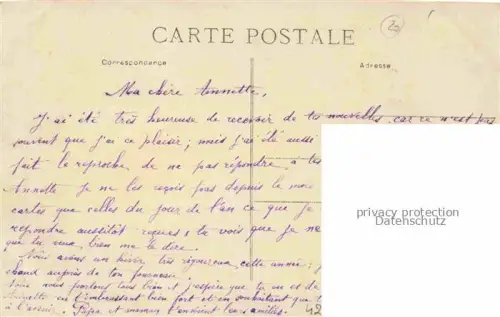 20
CARTE POSTALE
Correspondance
Adresse
Ma chère Annette,
J'ai été très heureuse de recevoir de tes nouvelles, car ce n'est pas
souvent que j'ai ce plaisir; mais j'ai été aussi
fait le reproche de ne pas répondre à tes
Annette je ne les reçois pas depuis le mois
cartes que celles du jour de l'an ce que je
répondre aussitôt reçues, tu vois que je ne
que tu veux bien me le dire.
Nous avons un hiver très rigoureux cette année:
chaud auprès de ton fourneau.
nous portons bien et j'espère que tu
en t'embrassant bien fort et en souhaitant que
à l'avenir. Papa et maman t'envoient leurs amitiés.
privacy protection
Datenschutz